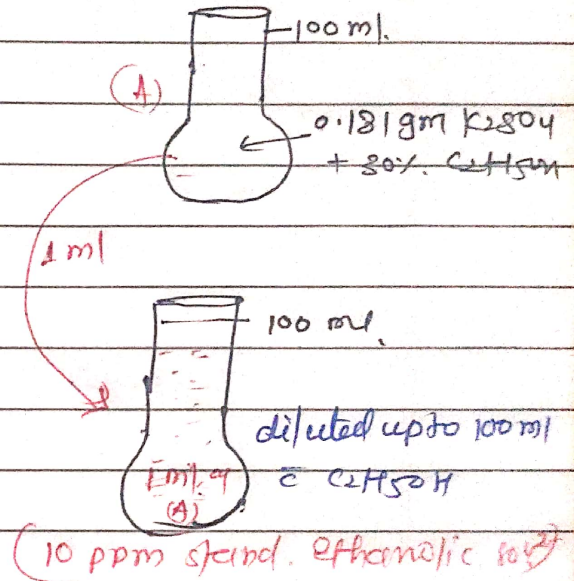 100 ml.
(A)
0.181 gm K2SO4
+ 30%. C2H5OH
1 ml
100 ml.
diluted upto 100 ml
c̄ C2H5OH
1 ml. of
(A)
(10 ppm stand. ethanolic SO4²⁻)